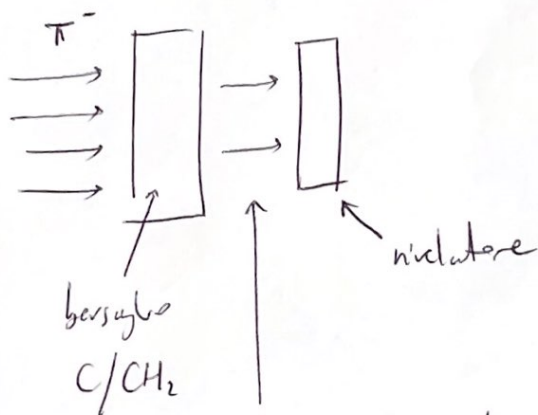 π⁻
rivelatore
bersaglio
C/CH₂